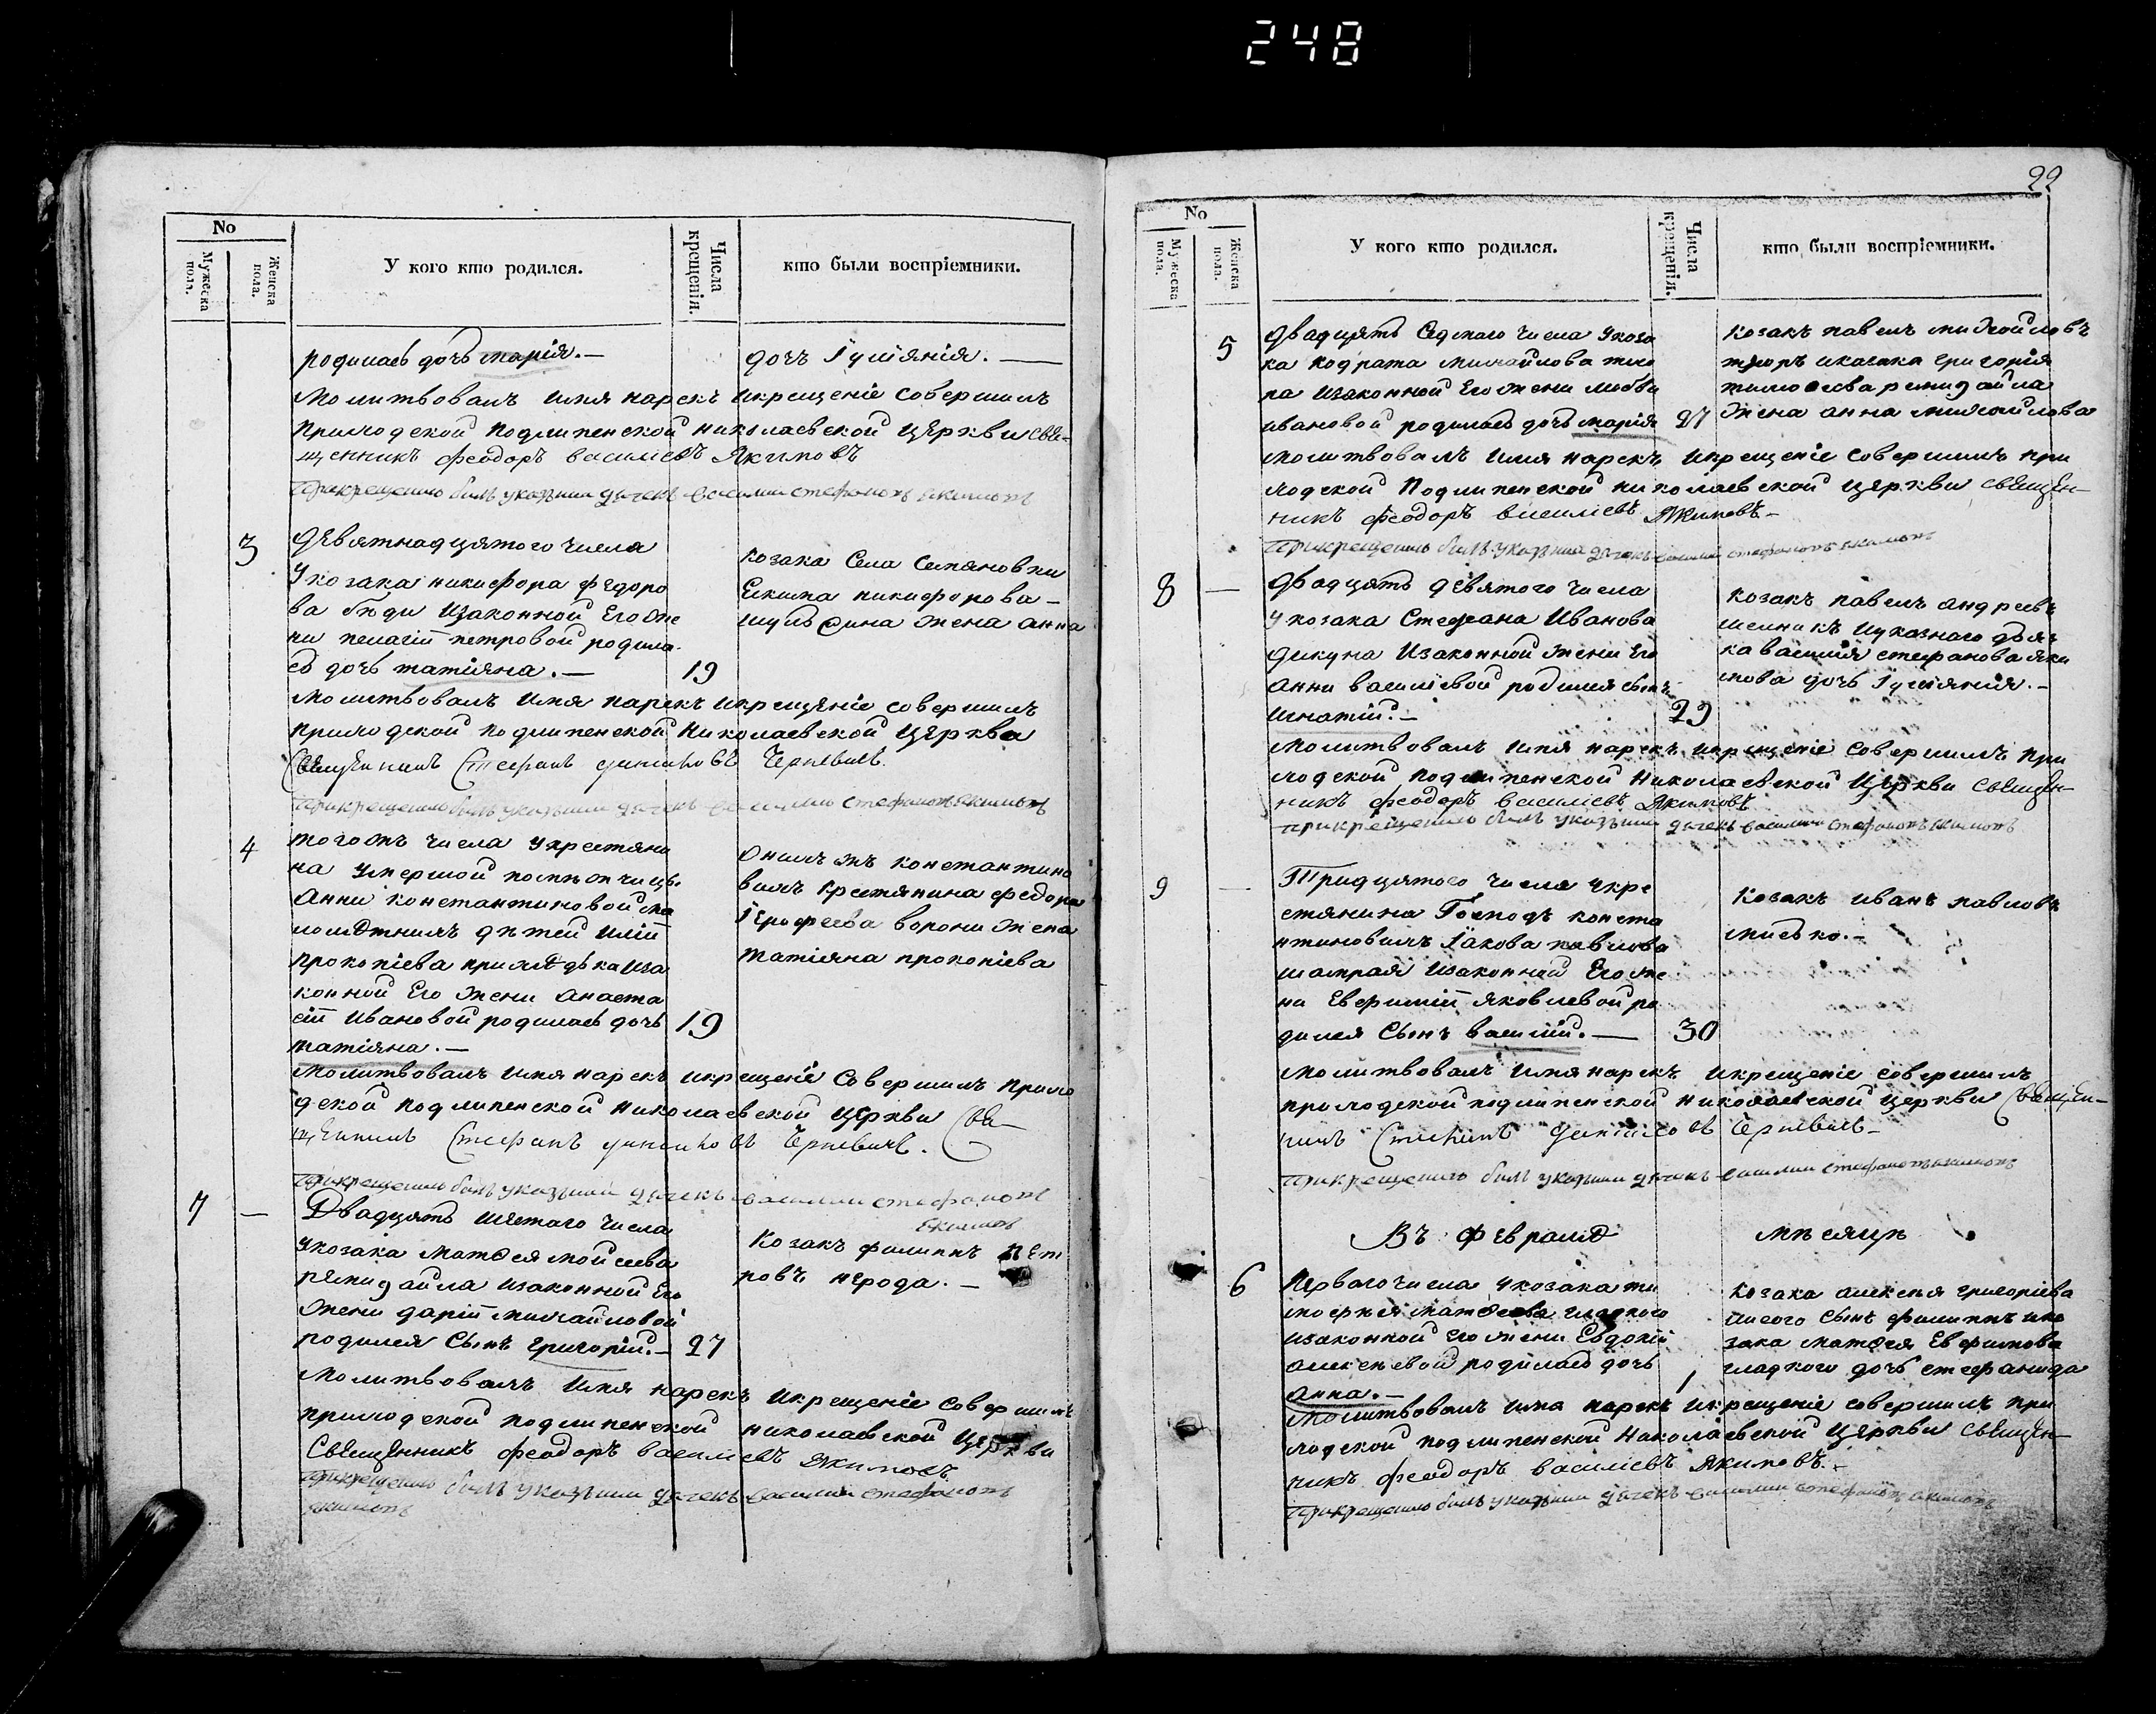 248
No
Мужеска пола.
Женска пола.
У кого кто родился.
Числа крещенія.
кто были воспріемники.
родилась дочь марія. —
дочь Іуліянія. —
Молитвовалъ имя нарекъ и крещеніе совершилъ
приходской Подлипенской николаевской церкви свя-
щенникъ феодоръ василіевъ Якимовъ
При крещеніи былъ указный дячекъ василий стефановъ екимовъ
3
Девятнадцятого числа
у козака никифора федоро
ва бѣди изаконной Его же
ни пелагіи петровой родила
сь дочь татіяна. —
19
козака Села Семяновки
Екима никифорова —
жена анна
Молитвовалъ имя нарекъ и крещеніе совершилъ
приходской подлипенской Николаевской церкви
Священникъ Стефанъ Черневичъ.
При крещеніи былъ указный дячекъ василий стефановъ екимовъ
4
тогожъ числа у крестяни
на умершой помѣщицы
Анни константиновой ма
лолѣтнихъ дѣтей иліи
прокопіева иза
конной Его жени анаста
сіи Ивановой родилась дочь
татіяна. —
19
онихъ жъ константино
вихъ крестянина федора
Ерофеева ворони жена
татіяна прокопіева
Молитвовалъ имя нарекъ и крещеніе Совершилъ прихо
дской подлипенской николаевской церкви Свя-
щенникъ Стефанъ Черневичъ.
При крещеніи былъ указный дячекъ василий стефановъ
екимовъ
7 —
Двадцять шестаго числа
у козака матѳея мойсеева
ремидайла изаконной Его
жени даріи михайловой
родился Сынъ григорій. —
27
Козакъ филиппъ пет
ровъ нерода. —
Молитвовалъ имя нарекъ и крещеніе совершилъ
приходской подлипенской николаевской церкви
Священникъ феодоръ василіевъ Якимовъ
При крещеніи былъ указный дячекъ василий стефановъ
екимовъ
22
No
Мужеска пола.
Женска пола.
У кого кто родился.
Числа крещенія.
кто были воспріемники.
5
Двадцять Седмаго числа у коза
ка кодрата михайлова
изаконной Его жени любви
ивановой родилась дочь марія
27
Козакъ павелъ михайловъ
и казака григорія
тимоѳеева ремидайла
жена анна михайлова
Молитвовалъ имя нарекъ и крещеніе совершилъ при
ходской Подлипенской николаевской церкви священ-
никъ феодоръ василіевъ Якимовъ —
При крещеніи былъ указный дячекъ василий стефановъ екимовъ
8 —
Двадцять девятого числа
у козака Стефана Иванова
дикуна изаконной жени Его
анни василіевой родился сынъ
игнатій. —
29
козакъ павелъ андреевъ
и указнаго дьяч
ка василія стефанова яки
мова дочь Іуліянія. —
Молитвовалъ имя нарекъ и крещеніе совершилъ при
ходской подлипенской Николаевской церкви священ-
никъ феодоръ василіевъ Якимовъ
При крещеніи былъ указный дячекъ василий стефановъ екимовъ
9 —
Тридцятого числа у кре
стянина Господъ конста
нтиновихъ Іакова павлова
шамрая изаконной Его же
ни Евфиміи Яковлевой ро
дился Сынъ василій. —
30
Козакъ иванъ павловъ
Молитвовалъ имя нарекъ и крещеніе совершилъ
приходской подлипенской николаевской церкви Священ-
никъ Стефанъ Черневичъ —
При крещеніи былъ указный дячекъ василий стефановъ екимовъ
Въ Февралѣ мѣсяцѣ
6
Перваго числа у козака ти
моѳея матѳеева гладкого
изаконной его жени Евдокіи
алексѣевой родилась дочь
Анна. —
1
козака алексѣя григоріева
сынъ филиппъ и ко
зака матѳея Евфимова
гладкого дочь стефанида
Молитвовалъ имя нарекъ и крещеніе совершилъ при
ходской подлипенской Николаевской церкви священ-
никъ феодоръ василіевъ Якимовъ. —
При крещеніи былъ указный дячекъ василий стефановъ екимовъ